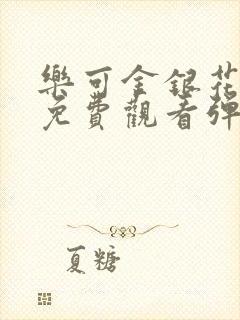 樂可金銀花
免費觀看彈
夏糖